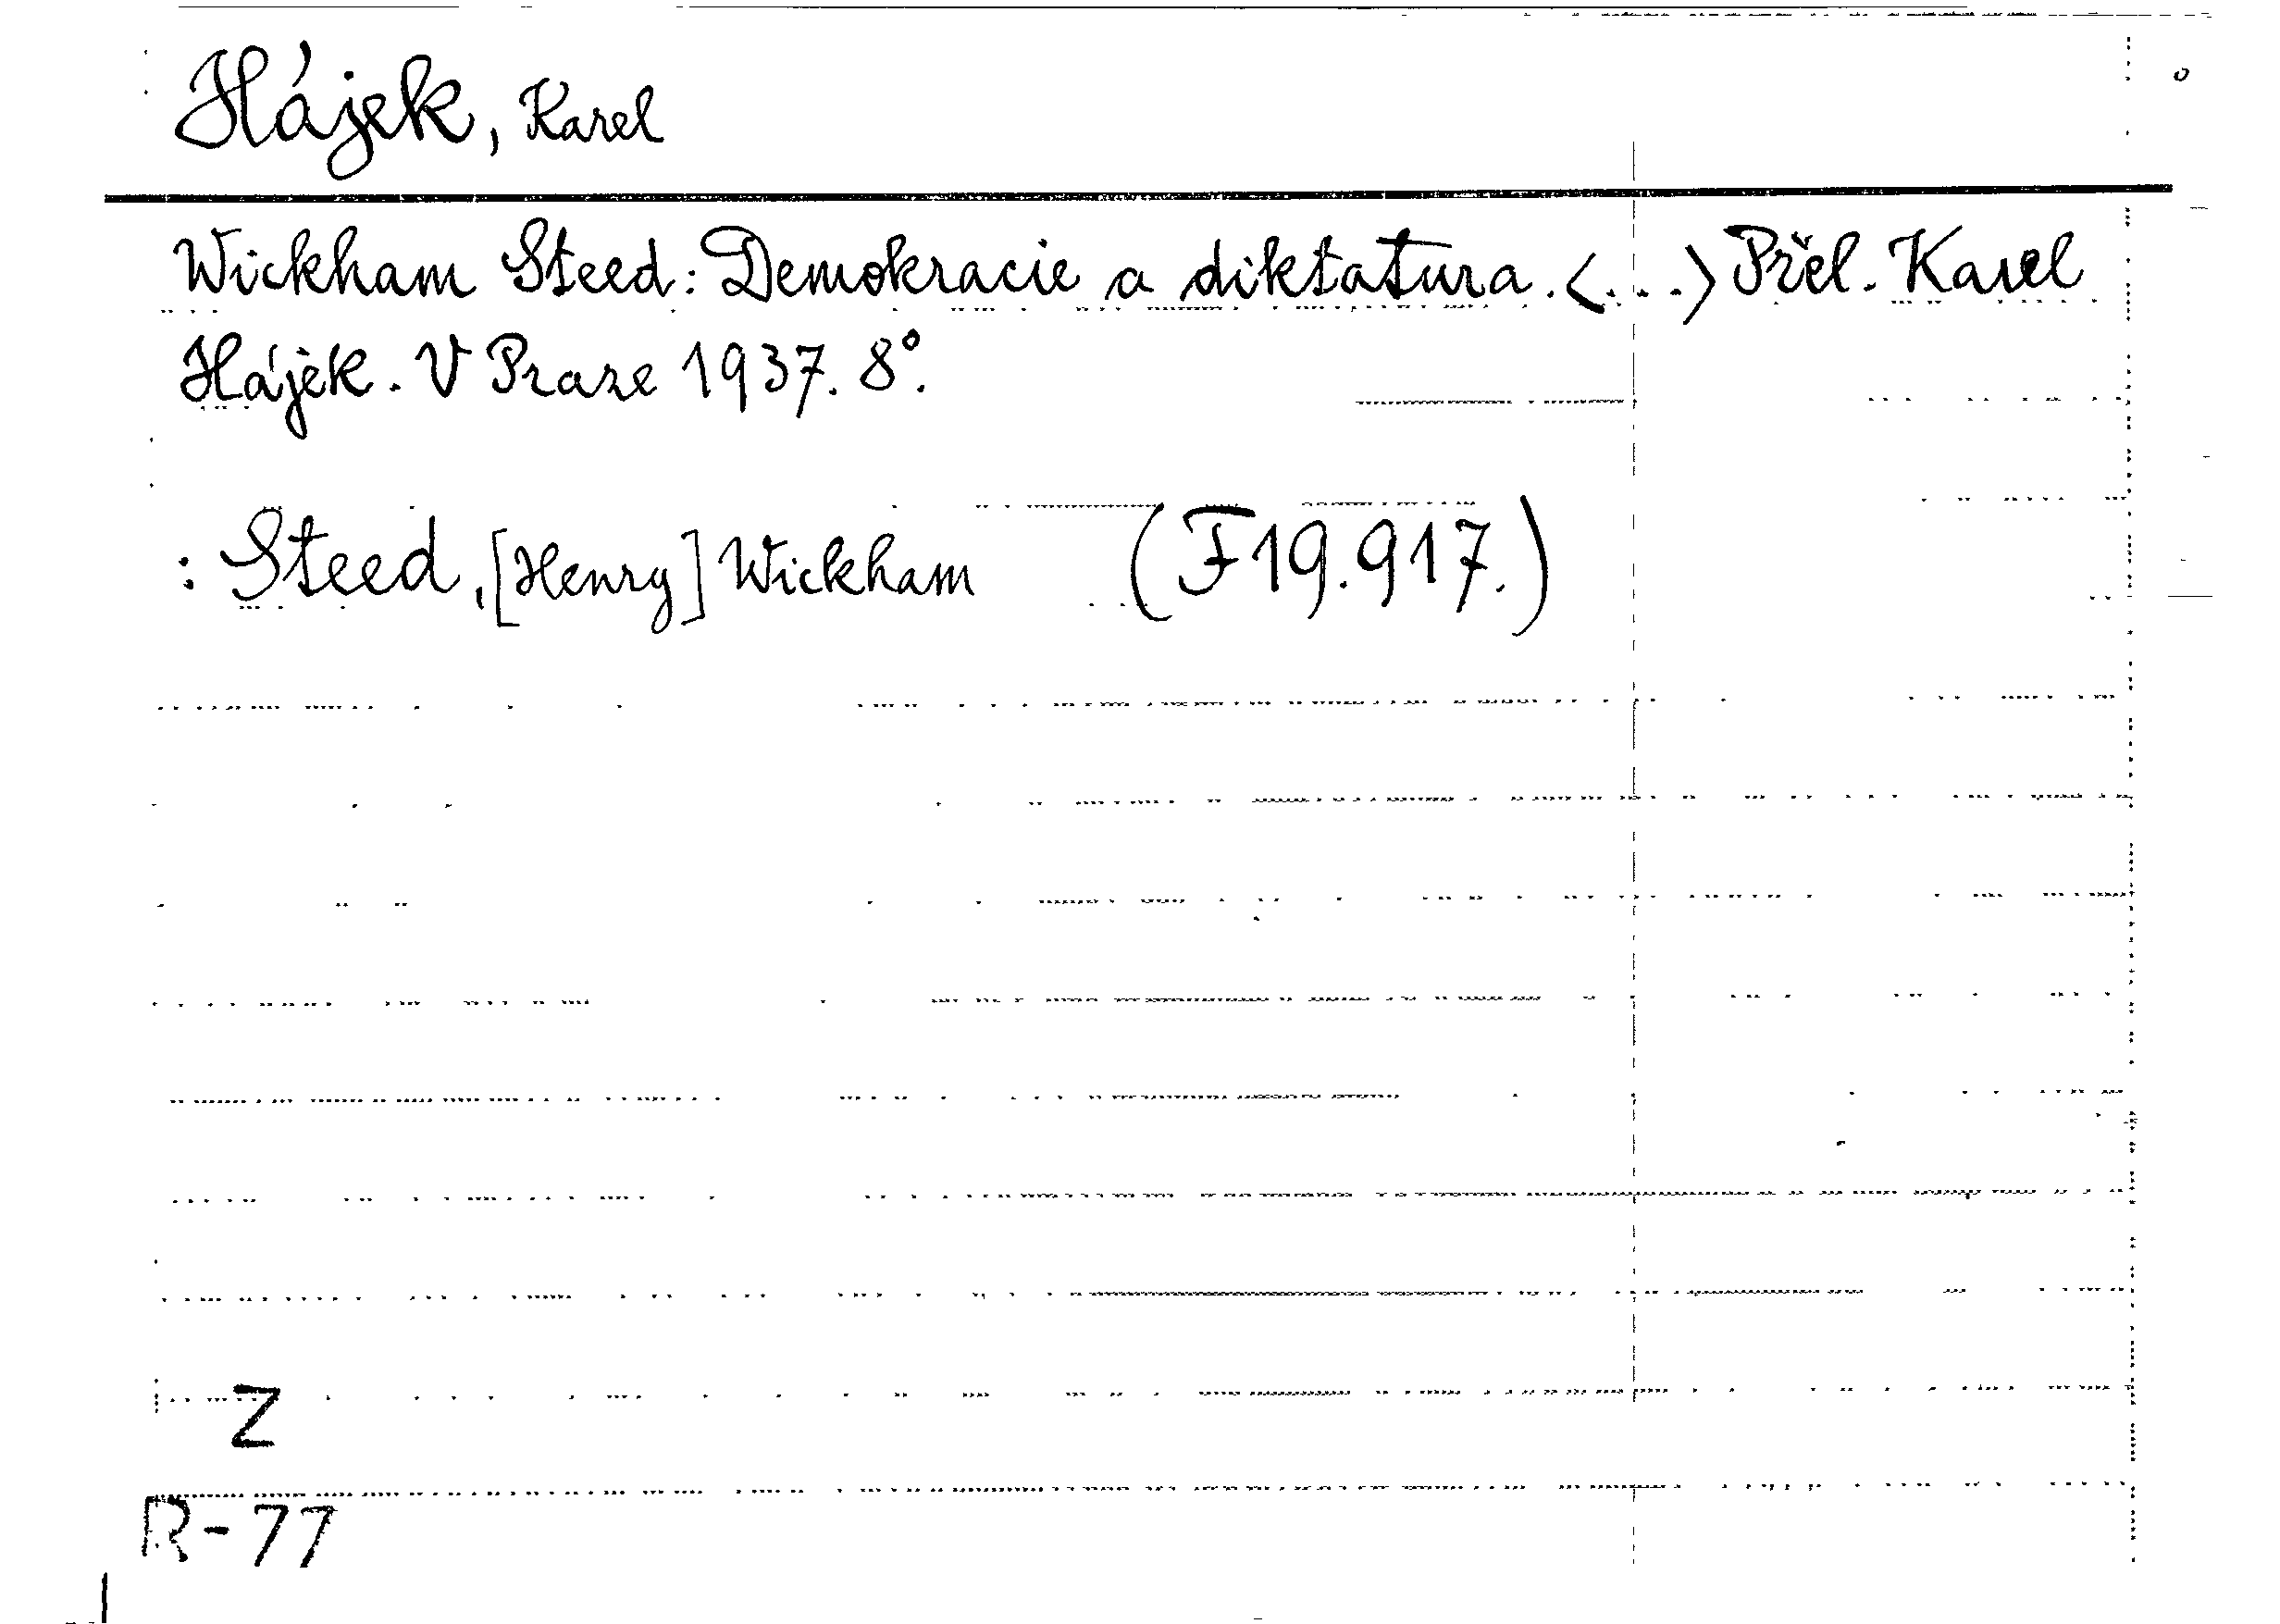 Hájek, Karel
Wickham Steed: Demokracie a diktatura. <...> Přel. Karel
Hájek. V Praze 1937. 8°.
: Steed, [Henry] Wickham (F19.917.)
Z
R-77